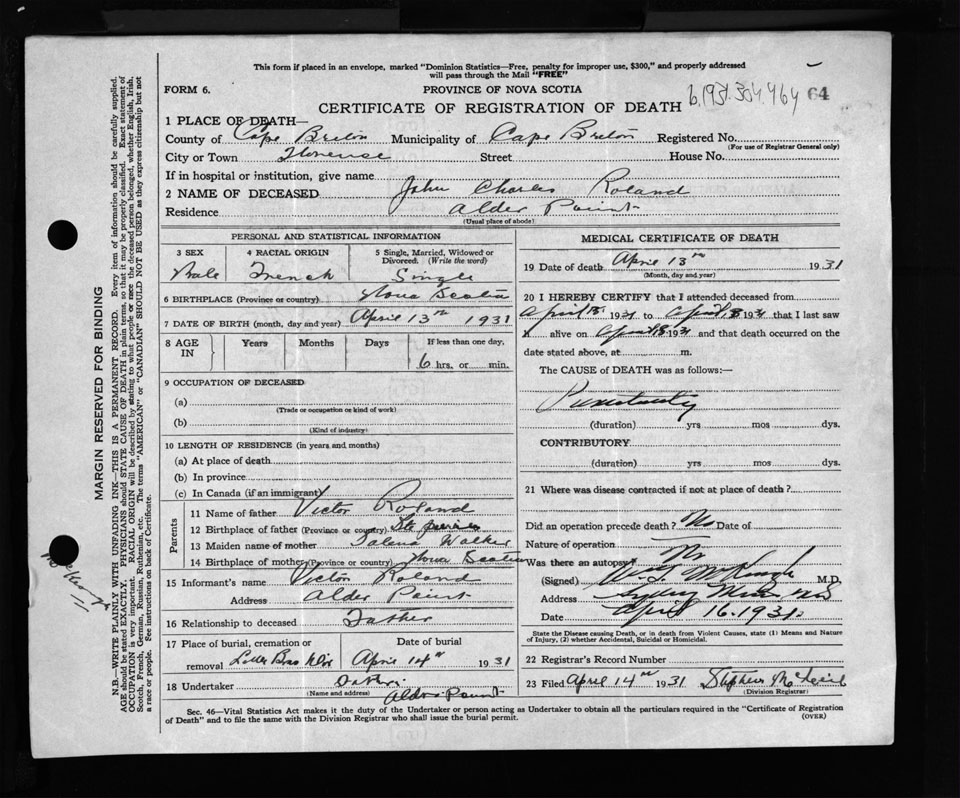 This form if placed in an envelope, marked "Dominion Statistics—Free, penalty for improper use, $300," and properly addressed
will pass through the Mail "FREE"
FORM 6.
PROVINCE OF NOVA SCOTIA
CERTIFICATE OF REGISTRATION OF DEATH
64
1 PLACE OF DEATH—
County of Cape Breton Municipality of Cape Breton Registered No.
(For use of Registrar General only)
City or Town Florence Street House No.
If in hospital or institution, give name
2 NAME OF DECEASED John Charles Roland
Residence Alder Point
(Usual place of abode)
PERSONAL AND STATISTICAL INFORMATION
3 SEX 4 RACIAL ORIGIN 5 Single, Married, Widowed or
Divorced: (Write the word)
Male French Single
6 BIRTHPLACE (Province or country) Nova Scotia
7 DATE OF BIRTH (month, day and year) April 13th 1931
8 AGE IN Years Months Days If less than one day,
6 hrs. or min.
9 OCCUPATION OF DECEASED
(a)
(Trade or occupation or kind of work)
(b)
(Kind of industry)
10 LENGTH OF RESIDENCE (in years and months)
(a) At place of death
(b) In province
(c) In Canada (if an immigrant)
Parents
11 Name of father Victor Roland
12 Birthplace of father (Province or country)
13 Maiden name of mother Walker
14 Birthplace of mother (Province or country) Nova Scotia
15 Informant's name Victor Roland
Address Alder Point
16 Relationship to deceased Father
17 Place of burial, cremation or Date of burial
removal Little Bras d'Or April 14th 1931
18 Undertaker Father
(Name and address) Alder Point
MEDICAL CERTIFICATE OF DEATH
19 Date of death April 13th 1931
(Month, day and year)
20 I HEREBY CERTIFY that I attended deceased from
April 13 1931 to April 13 1931 that I last saw
h alive on April 13 1931 and that death occurred on the
date stated above, at m.
The CAUSE of DEATH was as follows:—
Prematurity
(duration) yrs mos dys.
CONTRIBUTORY
(duration) yrs mos dys.
21 Where was disease contracted if not at place of death?
Did an operation precede death? No Date of
Nature of operation
Was there an autopsy? No
(Signed) M.D.
Address Sydney Mines NS
Date April 16. 1931.
State the Disease causing Death, or in death from Violent Causes, state (1) Means and Nature
of Injury, (2) whether Accidental, Suicidal or Homicidal.
22 Registrar's Record Number
23 Filed April 14th 1931 Stephen
(Division Registrar)
Sec. 46—Vital Statistics Act makes it the duty of the Undertaker or person acting as Undertaker to obtain all the particulars required in the "Certificate of Registration
of Death" and to file the same with the Division Registrar who shall issue the burial permit.
(OVER)
MARGIN RESERVED FOR BINDING
N.B.—WRITE PLAINLY WITH UNFADING INK—THIS IS A PERMANENT RECORD. Every item of information should be carefully supplied.
AGE should be stated EXACTLY. PHYSICIANS should STATE CAUSE OF DEATH in plain terms, so that it may be properly classified. Exact statement of
OCCUPATION is very important. RACIAL ORIGIN will be described by stating to what people or race the deceased person belonged, whether English, Irish,
Scotch, French, German, Russian, Ruthenian, etc. The terms "AMERICAN" or "CANADIAN" SHOULD NOT BE USED as they express citizenship but not
a race or people. See instructions on back of Certificate.